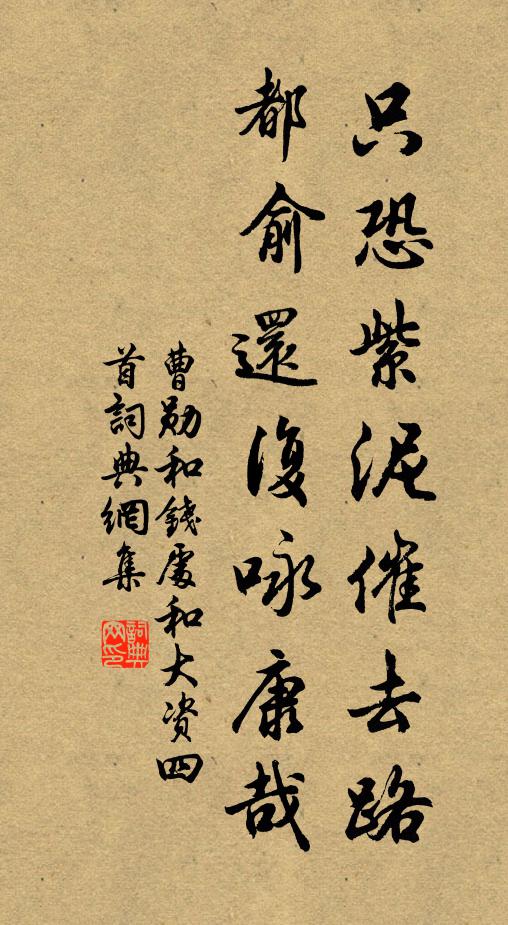 只恐紫泥催去路
都俞還復咏康哉
曹勛和錢處和大資四
首詞典網集
詞典網印